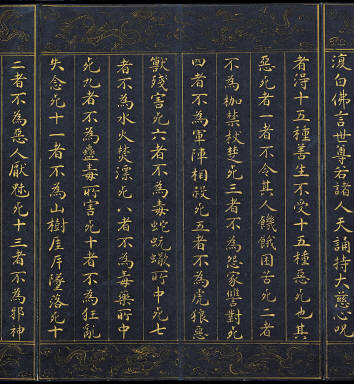 復白佛言世尊若諸人天誦持大悲心呪
者得十五種善生不受十五種惡死也其
惡死者一者不令其人飢餓困苦死二者
不為枷禁杖楚死三者不為怨家讐對死
四者不為軍陣相殺死五者不為虎狼惡
獸殘害死六者不為毒蛇蚖蠍所中死七
者不為水火焚漂死八者不為毒藥所中
死九者不為蠱毒所害死十者不為狂亂
失念死十一者不為山樹崖岸墜落死十
二者不為惡人厭魅死十三者不為邪神